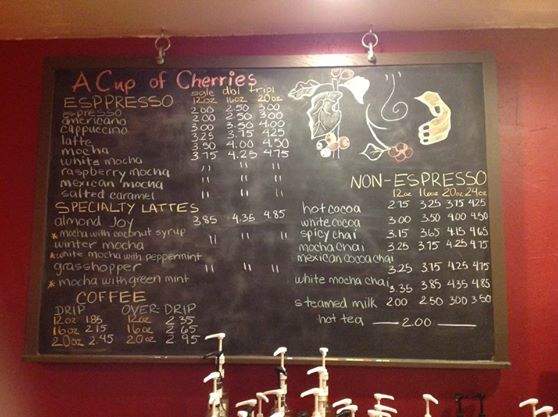 A Cup of Cherries
sgle dbl tripl
ESPPRESSO 12oz 16oz 20oz
espresso 2.00 2.50 3.00
americano 2.00 2.50 3.00
cappuccino 3.00 3.50 4.00
latte 3.25 3.75 4.25
mocha 3.50 4.00 4.50
white mocha 3.75 4.25 4.75
raspberry mocha " " "
mexican mocha " " "
salted caramel " " "
SPECIALTY LATTES
almond Joy 3.85 4.35 4.85
* mocha with coconut syrup
winter mocha " " "
* white mocha with peppermint
grasshopper " " "
* mocha with green mint
COFFEE
DRIP OVER-DRIP
12oz 1.85 12oz 2.35
16oz 2.15 16oz 2.65
20oz 2.45 20oz 2.95
NON-ESPRESSO
12oz 16oz 20oz 24oz
hot cocoa 2.75 3.25 3.75 4.25
white cocoa 3.00 3.50 4.00 4.50
spicy chai 3.15 3.65 4.15 4.65
mocha chai 3.25 3.75 4.25 4.75
mexican cocoa chai
3.25 3.75 4.25 4.75
white mocha chai 3.35 3.85 4.35 4.85
steamed milk 2.00 2.50 3.00 3.50
hot tea — 2.00 —